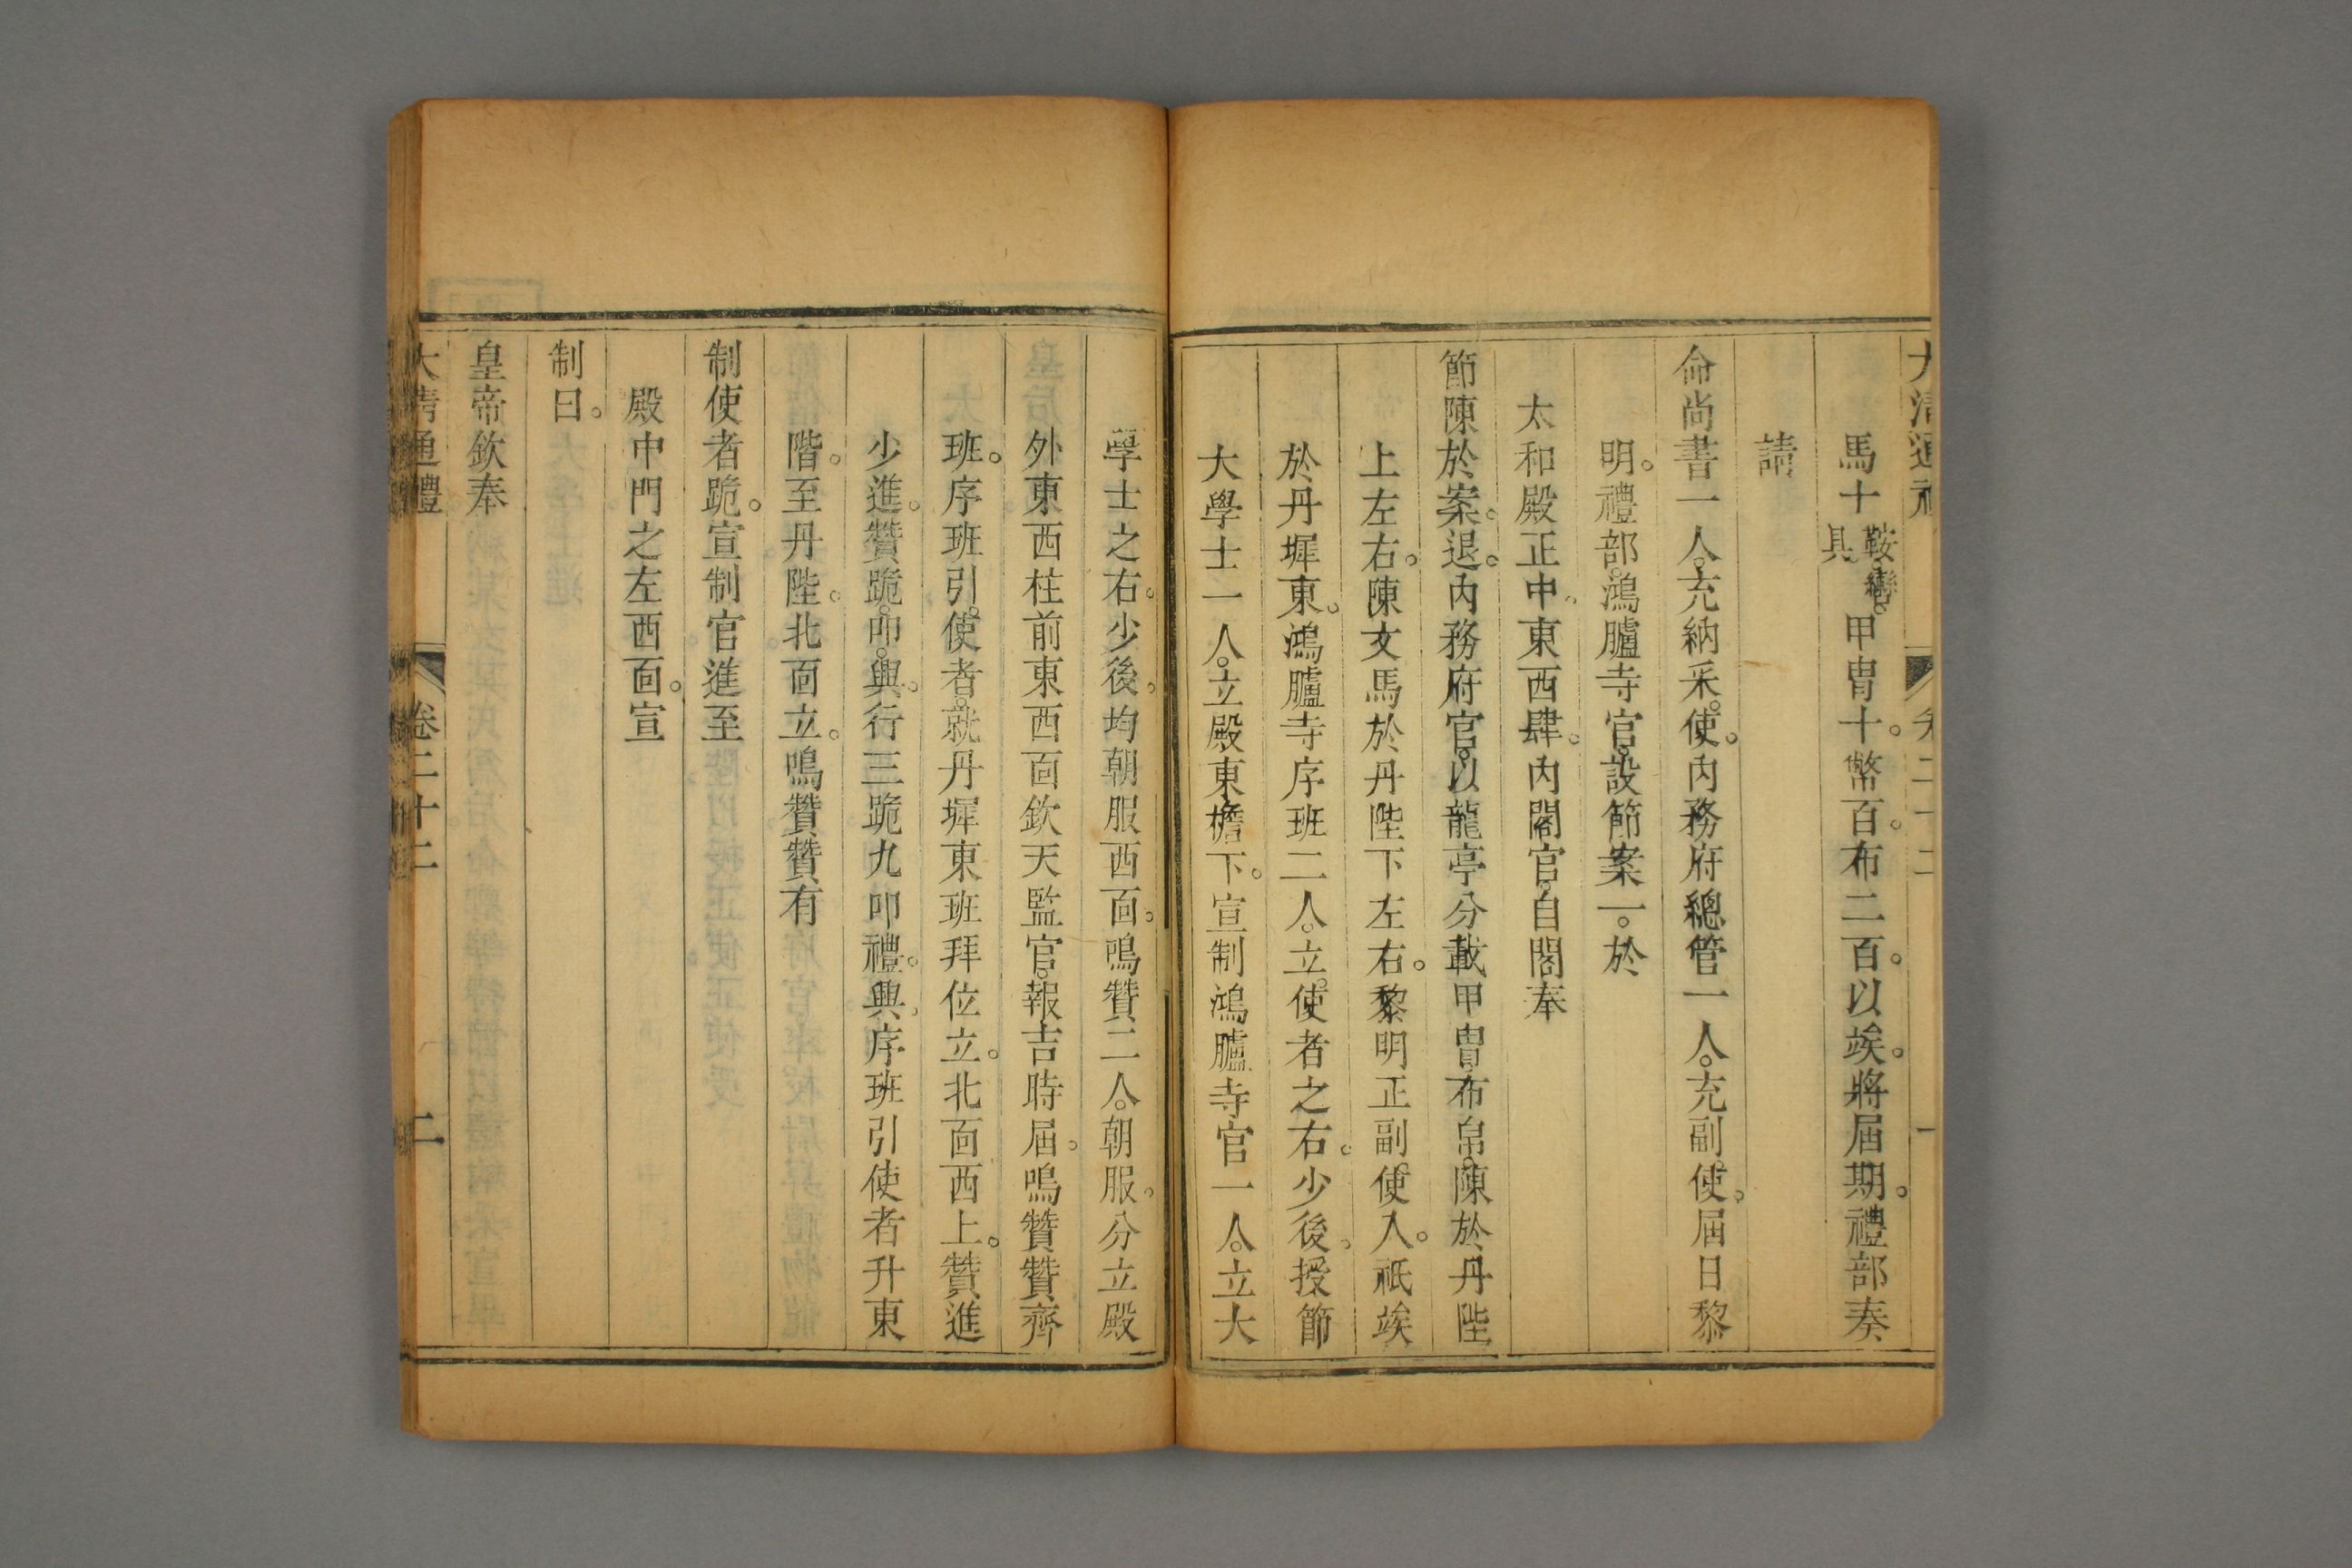 大清通禮 卷二十二 一
馬十鞍轡具甲胄十。幣百。布二百。以竢。將屆期。禮部奏
請
命尚書一人。充納采使。內務府總管一人。充副使。屆日黎
明。禮部。鴻臚寺官。設節案一。於
太和殿正中。東西肆。內閣官。自閣奉
節陳於案。退。內務府官。以龍亭分載甲胄布帛。陳於丹陛
上左右。陳文馬於丹陛下左右。黎明正副使入。祇竢
於丹墀東。鴻臚寺序班二人。立使者之右。少後。授節
大學士一人。立殿東檐下。宣制鴻臚寺官一人。立大
學士之右。少後。均朝服西面。鳴贊二人。朝服。分立殿
外東西柱前東西面欽天監官。報吉時屆。鳴贊贊齊
班。序班引使者。就丹墀東班拜位立。北面西上。贊進
少進。贊跪。叩。興。行三跪九叩禮。興。序班引使者升東
階。至丹陛。北面立。鳴贊贊有
制使者跪。宣制官進至
殿中門之左西面。宣
制曰。
皇帝欽奉
大清通禮 卷二十二 二